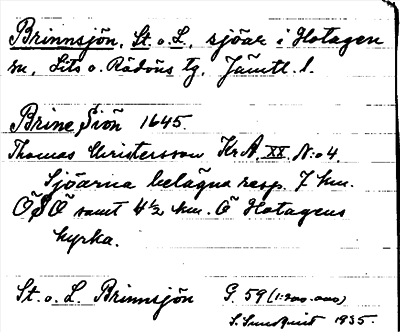 Brinnsjön, St. o. L., sjöar i Hotagen
sn, Lits o. Rödöns tg, Jämtl. l.
Brine Siön 1645.
Thomas Christersson KrA, XX, N:o 4.
Sjöarna belägna resp. 7 km.
ÖSÖ samt 4½ km. Ö Hotagens
kyrka.
St. o. L. Brinnsjön G. 59 (1:200.000)
S. Sundquist 1935.